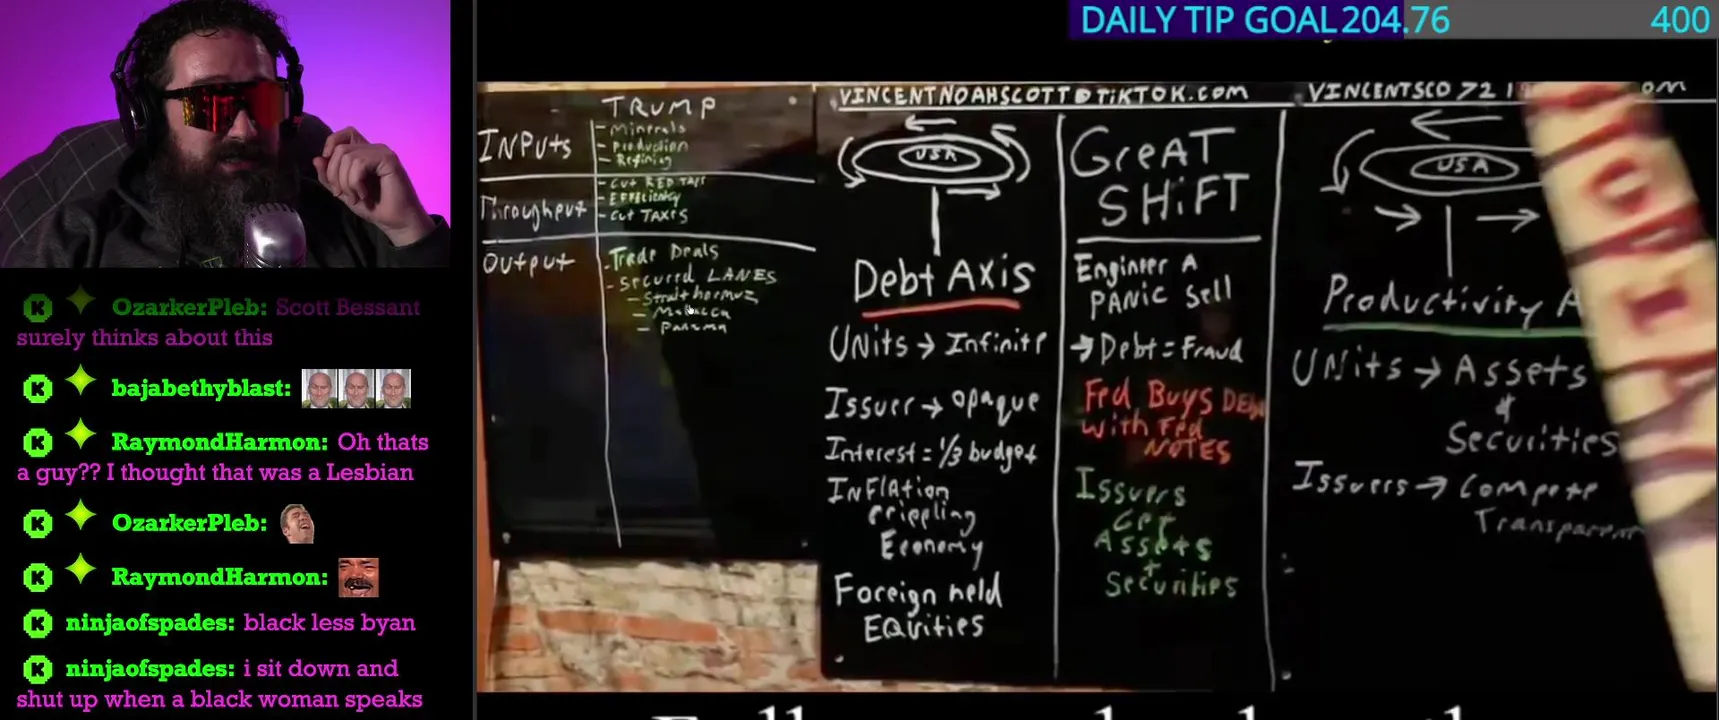 DAILY TIP GOAL 204.76 400
OzarkerPleb: Scott Bessant
surely thinks about this
bajabethyblast:
RaymondHarmon: Oh thats
a guy?? I thought that was a Lesbian
OzarkerPleb:
RaymondHarmon:
ninjaofspades: black less byan
ninjaofspades: i sit down and
shut up when a black woman speaks
TRUMP
INPUTS
- Minerals
- Production
- Refining
Throughput
- CUT RED TAPE
- EFFICIENCY
- CUT TAXES
OUTPUT
- Trade Deals
- Secured LANES
- Strait hormuz
- Malacca
- Panama
VINCENTNOAHSCOTT@TIKTOK.COM
USA
Debt AXIS
UNits → Infinite
Issuer → opaque
Interest = 1/3 budget
INFlAtion
crippling
Economy
Foreign held
EQuities
GreAT
SHiFT
Engineer A
PANIC Sell
→ Debt = Fraud
Fed Buys DEBt
with Fed
NOTES
Issuers
Assets
+
Securities
VINCENTSCO
USA
Productivity A
UNits → Assets
&
Securities
Issuers → Compete
Transparent